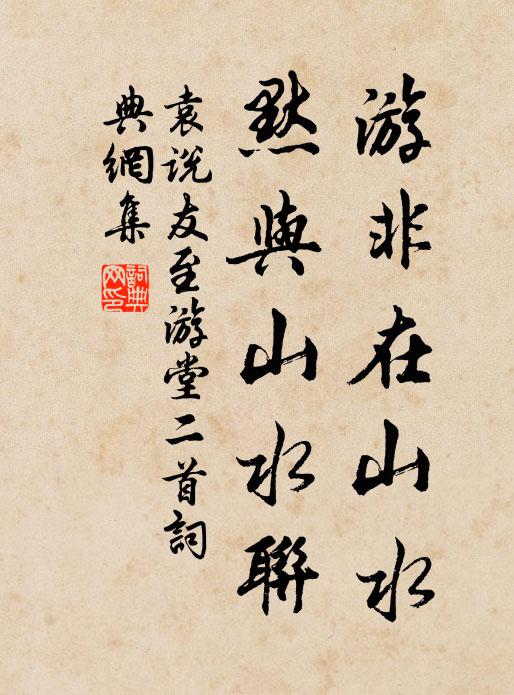 游非在山水
默與山水聯
袁説友至游堂二首詞
典網集
詞典網印